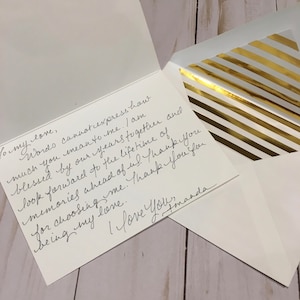 To my love,
Words cannot express how
much you mean to me. I am
blessed by our years together and
look forward to the lifetime of
memories ahead of us. Thank you
for choosing me. Thank you for
being my love.
I love You,
Amanda